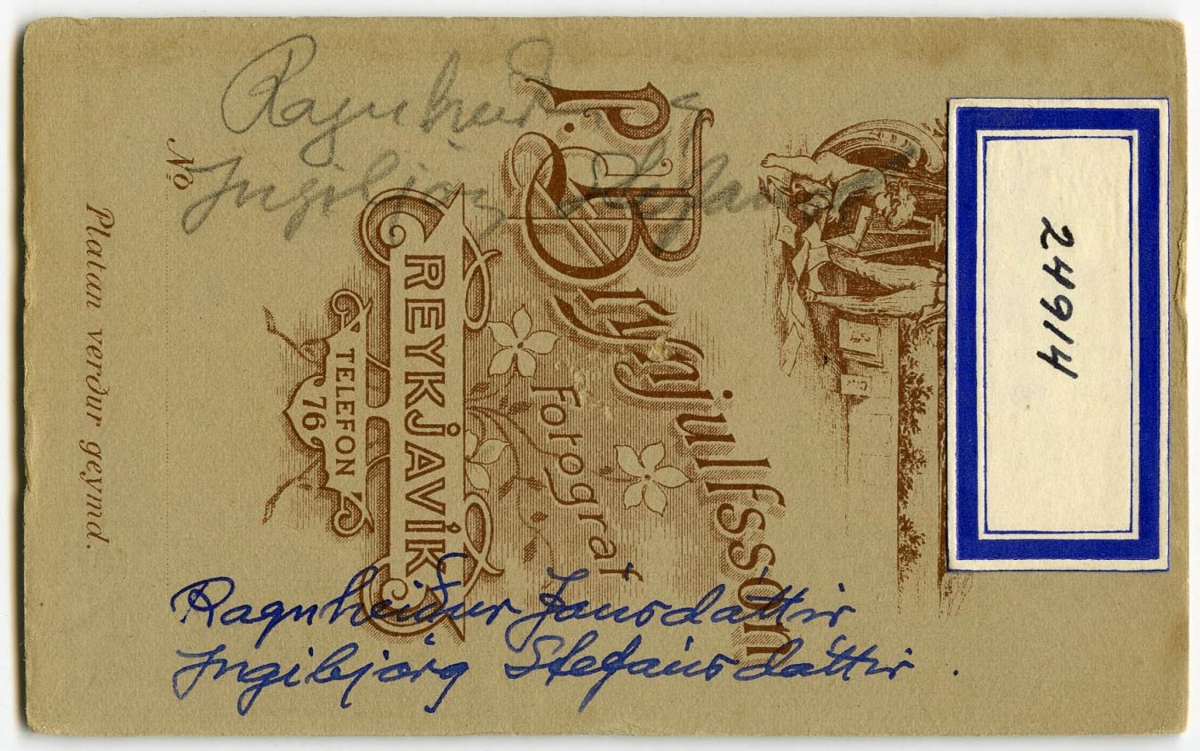 24914
P. Brynjulfsson
Fotograf
REYKJAVÍK
TELEFON
76
No
Platan verður geymd.
Ragnheiður
Ingibjörg Stefánsd
Ragnheiður Jónsdóttir
Ingibjörg Stefánsdóttir.